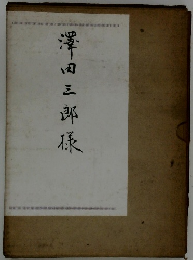 澤田三郎様